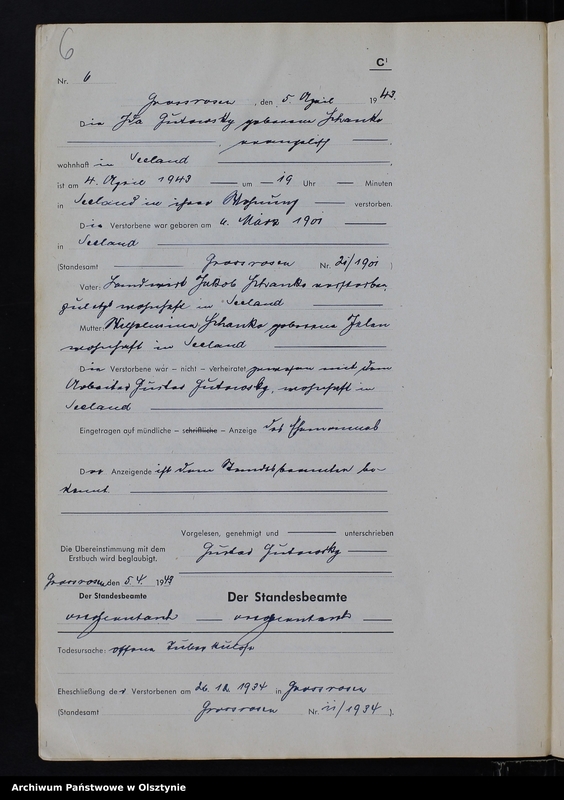 6
C¹
Nr. 6
Grossrosen, den 5. April 1943.
Die Ida Gutowsky geborene Schanko
, evangelisch
wohnhaft in Seeland
ist am 4. April 1943 um 19 Uhr Minuten
in Seeland in ihrer Wohnung verstorben.
Die Verstorbene war geboren am 4. März 1901
in Seeland
(Standesamt Grossrosen Nr. 21/1901)
Vater: Landwirt Jakob Schanko verstorben,
zuletzt wohnhaft in Seeland
Mutter: Wilhelmina Schanko geborene
wohnhaft in Seeland
Die Verstorbene war – nicht – verheiratet gewesen mit dem
Arbeiter Gustav Gutowsky, wohnhaft in
Seeland
Eingetragen auf mündliche – schriftliche – Anzeige des Ehemannes
Der Anzeigende ist dem Standesbeamten be-
kannt.
Vorgelesen, genehmigt und unterschrieben
Die Übereinstimmung mit dem
Erstbuch wird beglaubigt.
Gustav Gutowsky
Grossrosen, den 5.4. 1943
Der Standesbeamte
Der Standesbeamte
Todesursache: offene Tuberkulose
Eheschließung der Verstorbenen am 26.12.1934 in Grossrosen
(Standesamt Grossrosen Nr. 11/1934).
Archiwum Państwowe w Olsztynie